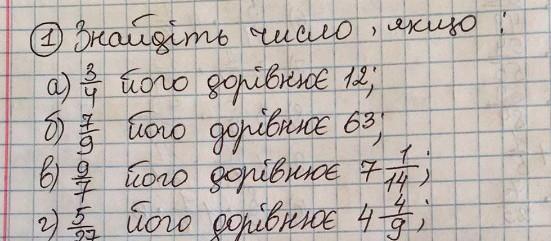 ① Знайдіть число, якщо:
а) 3/4 його дорівнює 12;
б) 7/9 його дорівнює 63;
в) 9/7 його дорівнює 7 1/14;
г) 5/27 його дорівнює 4 4/9;